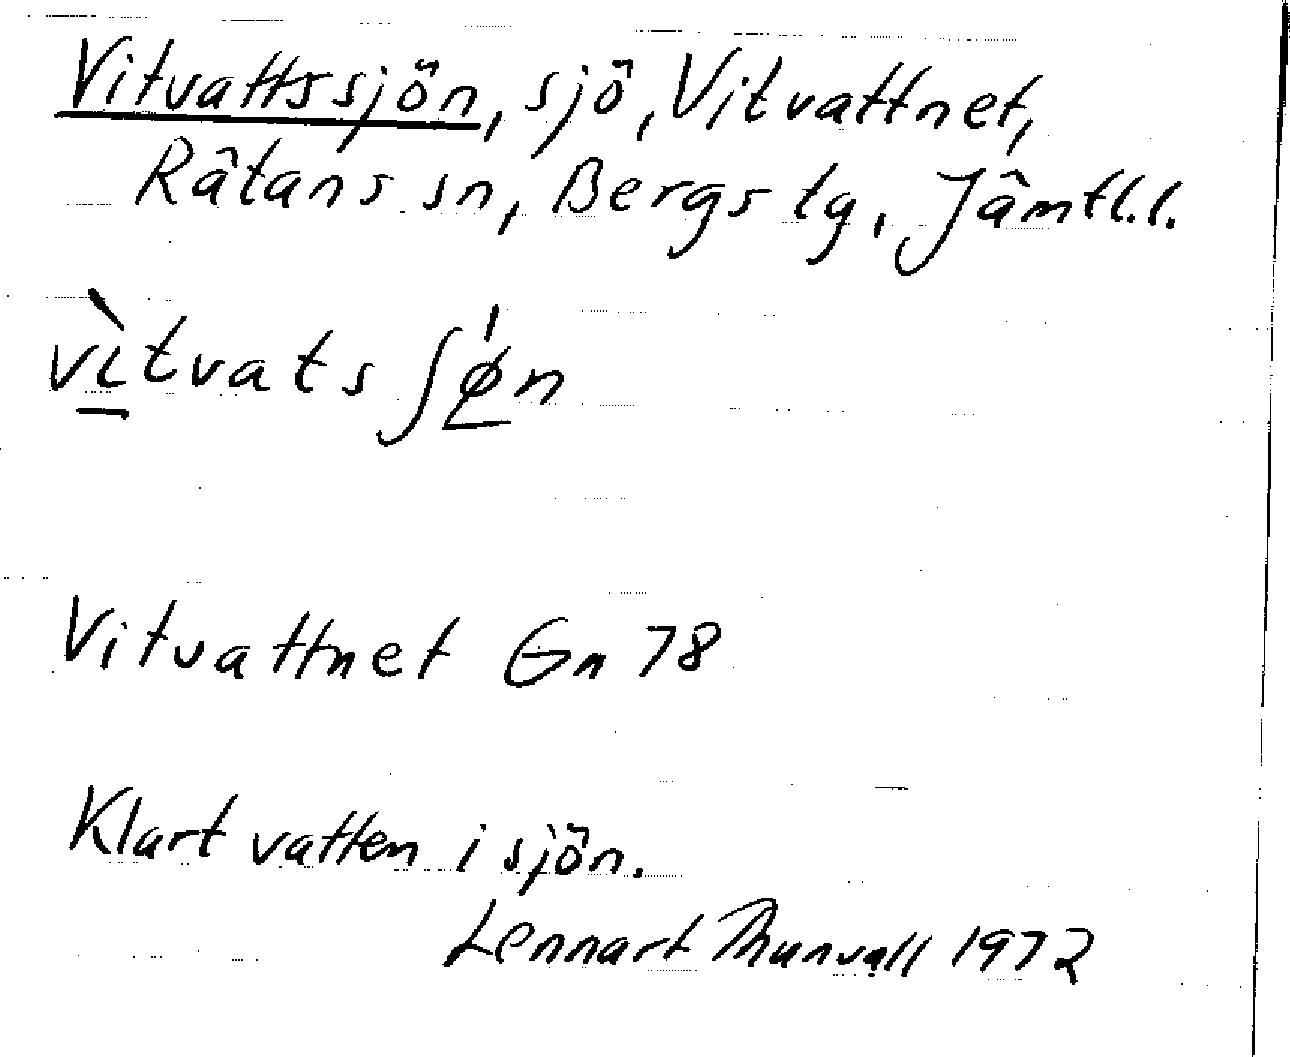 Vitvattssjön, sjö, Vitvattnet,
Rätans sn, Bergs tg, Jämtl.l.
vìtvatsʃø̀n
Vitvattnet Gn 78
Klart vatten i sjön.
Lennart Thunvall 1972